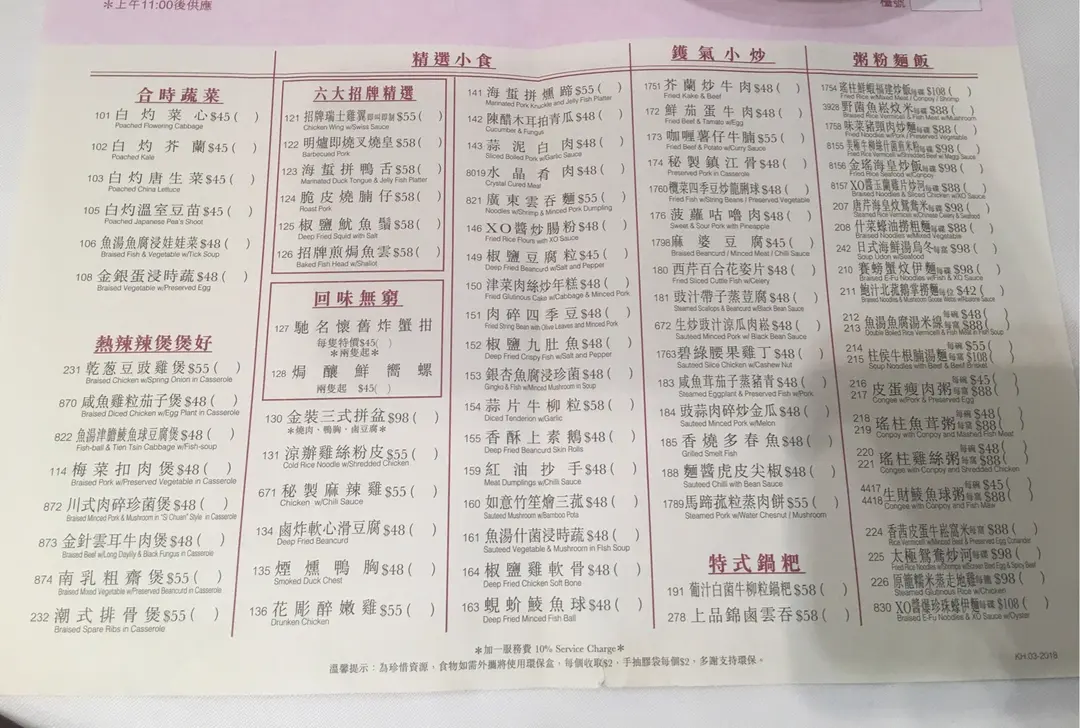 *上午11:00後供應
合時蔬菜
101 白灼菜心 $45 ( )
Poached Flowering Cabbage
102 白灼芥蘭 $45 ( )
Poached Kale
103 白灼唐生菜 $45 ( )
Poached China Lettuce
105 白灼溫室豆苗 $45 ( )
Poached Japanese Pea's Shoot
106 魚湯魚腐浸娃娃菜 $48 ( )
Braised Fish & Vegetable w/Tick Soup
108 金銀蛋浸時蔬 $48 ( )
Braised Vegetable w/Preserved Egg
熱辣辣煲煲好
231 乾葱豆豉雞煲 $55 ( )
Braised Chicken w/Spring Onion in Casserole
870 咸魚雞粒茄子煲 $48 ( )
Braised Diced Chicken w/Egg Plant in Casserole
822 魚湯津膽鯪魚球豆腐煲 $48 ( )
Fish-ball & Tien Tsin Cabbage w/Fish-soup
114 梅菜扣肉煲 $48 ( )
Braised Pork w/Preserved Vegetable in Casserole
872 川式肉碎珍菌煲 $48 ( )
Braised Minced Pork & Mushroom in "Si Chuan" Style in Casserole
873 金針雲耳牛肉煲 $48 ( )
Braised Beef w/Long Daylily & Black Fungus in Casserole
874 南乳粗齋煲 $55 ( )
Braised Mixed Vegetable w/Preserved Beancurd in Casserole
232 潮式排骨煲 $55 ( )
Braised Spare Ribs in Casserole
精選小食
六大招牌精選
121 招牌瑞士雞翼 即叫即制 $55 ( )
Chicken Wing w/Swiss Sauce
122 明爐即燒叉燒皇 $58 ( )
Barbecued Pork
123 海蜇拼鴨舌 $58 ( )
Marinated Duck Tongue & Jelly Fish Platter
124 脆皮燒腩仔 $58 ( )
Roast Pork
125 椒鹽魷魚鬚 $58 ( )
Deep Fried Squid with Salt
126 招牌煎焗魚雲 $58 ( )
Baked Fish Head w/Shallot
回味無窮
127 馳名懷舊炸蟹拑
每隻特價$45( )
*兩隻起*
128 焗釀鮮嚮螺
兩隻起 $45( )
130 金裝三式拼盆 $98 ( )
*燒肉、鴨胸、鹵豆腐*
131 涼辦雞絲粉皮 $55 ( )
Cold Rice Noodle w/Shredded Chicken
671 秘製麻辣雞 $55 ( )
Chicken w/Chili Sauce
134 鹵炸軟心滑豆腐 $48 ( )
Deep Fried Beancurd
135 煙燻鴨胸 $48 ( )
Smoked Duck Chest
136 花彫醉嫩雞 $55 ( )
Drunken Chicken
141 海蜇拼燻蹄 $55 ( )
Marinated Pork Knuckle and Jelly Fish Platter
142 陳醋木耳拍青瓜 $48 ( )
Cucumber & Fungus
143 蒜泥白肉 $48 ( )
Sliced Boiled Pork w/Garlic Sauce
8019 水晶肴肉 $48 ( )
Crystal Cured Meat
821 廣東雲吞麵 $55 ( )
Noodles w/Shrimp & Minced Pork Dumpling
146 XO醬炒腸粉 $48 ( )
Fried Rice Flours with XO Sauce
149 椒鹽豆腐粒 $45 ( )
Deep Fried Beancurd w/Salt and Pepper
150 津菜肉絲炒年糕 $48 ( )
Fried Glutinous Cake w/Cabbage & Minced Pork
151 肉碎四季豆 $48 ( )
Fried String Bean with Olive Leaves and Minced Pork
152 椒鹽九肚魚 $48 ( )
Deep Fried Crispy Fish w/Salt and Pepper
153 銀杏魚腐浸珍菌 $48 ( )
Gingko & Fish w/Minced Mushroom in Soup
154 蒜片牛柳粒 $58 ( )
Diced Tenderlion w/Garlic
155 香酥上素鵝 $48 ( )
Deep Fried Beancurd Skin Rolls
159 紅油抄手 $48 ( )
Meat Dumplings w/Chilli Sauce
160 如意竹笙燴三菰 $48 ( )
Sauteed Mushroom w/Bamboo Pota
161 魚湯什菌浸時蔬 $48 ( )
Sauteed Vegetable & Mushroom in Fish Soup
164 椒鹽雞軟骨 $48 ( )
Deep Fried Chicken Soft Bone
163 蜆蚧鯪魚球 $48 ( )
Deep Fried Minced Fish Ball
鑊氣小炒
1751 芥蘭炒牛肉 $48 ( )
Fried Kake & Beef
172 鮮茄蛋牛肉 $48 ( )
Fried Beef & Tomato w/Egg
173 咖喱薯仔牛腩 $55 ( )
Fried Beef & Potato w/Curry Sauce
174 秘製鎮江骨 $48 ( )
Preserved Pork in Casserole
1760 欖菜四季豆炒龍脷球 $48 ( )
Fried Fish w/String Beans / Preserved Vegetable
176 菠蘿咕嚕肉 $48 ( )
Sweet & Sour Pork with Pineapple
1798 麻婆豆腐 $45 ( )
Braised Beancurd / Minced Meat / Chilli Sauce
180 西芹百合花姿片 $48 ( )
Fried Sliced Cuttle Fish w/Celery
181 豉汁帶子蒸荳腐 $48 ( )
Steamed Scallops & Beancurd w/Black Bean Sauce
672 生炒豉汁涼瓜肉崧 $48 ( )
Sauteed Minced Pork w/ Black Bean Sauce
1763 碧綠腰果雞丁 $48 ( )
Sauteed Slice Chicken w/Cashew Nut
183 咸魚茸茄子蒸豬青 $48 ( )
Steamed Eggplant & Preserved Fish w/Pork
184 豉蒜肉碎炒金瓜 $48 ( )
Sauteed Minced Pork w/Melon
185 香燒多春魚 $48 ( )
Grilled Smelt Fish
188 麵醬虎皮尖椒 $48 ( )
Sauteed Chilli with Bean Sauce
1789 馬蹄菰粒蒸肉餅 $55 ( )
Steamed Pork w/Water Chesnut / Mushroom
特式鍋粑
191 葡汁白菌牛柳粒鍋粑 $58 ( )
278 上品錦鹵雲吞 $58 ( )
粥粉麵飯
1754 瑤柱鮮蝦福建炒飯 每碟 $108 ( )
Fried Rice w/Mixed Meat / Conpoy / Shrimp
3928 野菌魚崧炆米 每窩 $88 ( )
Braised Rice Vermicelli & Fish Meat w/Mushroom
1758 味菜豬頸肉炒麵 每碟 $88 ( )
Fried Noodles w/Pork / Preserved Vegetable
8155 牛柳絲什菌煎米粉 每碟 $98 ( )
8156 金瑤海皇炒飯 每碟 $98 ( )
Fried Rice Seafood w/Conpoy
8157 XO醬玉蘭雞片炒河 每碟 $88 ( )
207 唐芹海皇炆鴛鴦米 每窩 $98 ( )
208 什菜蠔油撈粗麵 每碟 $88 ( )
Braised Noodles w/Mixed Vegetable
242 日式海鮮湯烏冬 每窩 $98 ( )
210 賽螃蟹炆伊麵 每碟 $98 ( )
Braised E-Fu Noodles w/Fish & XO Sauce
211 鮑汁北菰鵝掌撈麵 每位 $42 ( )
212 213 魚湯魚腐湯米線 每碗 $48 每窩 $88 ( )
Double Boiled Rice Vermicelli & Fish Meat in Fish Soup
214 215 柱侯牛根腩湯麵 每碗 $55 每窩 $108 ( )
Soup Noodles with Beef & Beef Brisket
216 217 皮蛋瘦肉粥 每碗 $45 每窩 $88 ( )
Congee w/Pork & Preserved Egg
218 219 瑤柱魚茸粥 每碗 $48 每窩 $88 ( )
Conpoy with Conpoy and Mashed Fish Meat
220 221 瑤柱雞絲粥 每碗 $48 每窩 $88 ( )
Congee with Conpoy and Shredded Chicken
4417 4418 生財鯪魚球粥 每碗 $45 每窩 $88 ( )
Congee with Conpoy and Fish Mike
224 香茜皮蛋牛崧窩米 每窩 $88 ( )
Rice Vermicelli w/Minced Beef & Preserved Egg Coriander
225 太極鴛鴦炒河 每碟 $98 ( )
226 原籠糯米蒸走地雞 每籠 $98 ( )
Steamed Glutinous Rice w/Chicken
830 XO醬爆珍珠蠔伊麵 每碟 $108 ( )
Braised E-Fu Noodles & XO Sauce w/Oyster
*加一服務費 10% Service Charge*
溫馨提示：為珍惜資源，食物如需外攜將使用環保盒，每個收取$2，手抽膠袋每個$2，多謝支持環保。
KH.03-2018